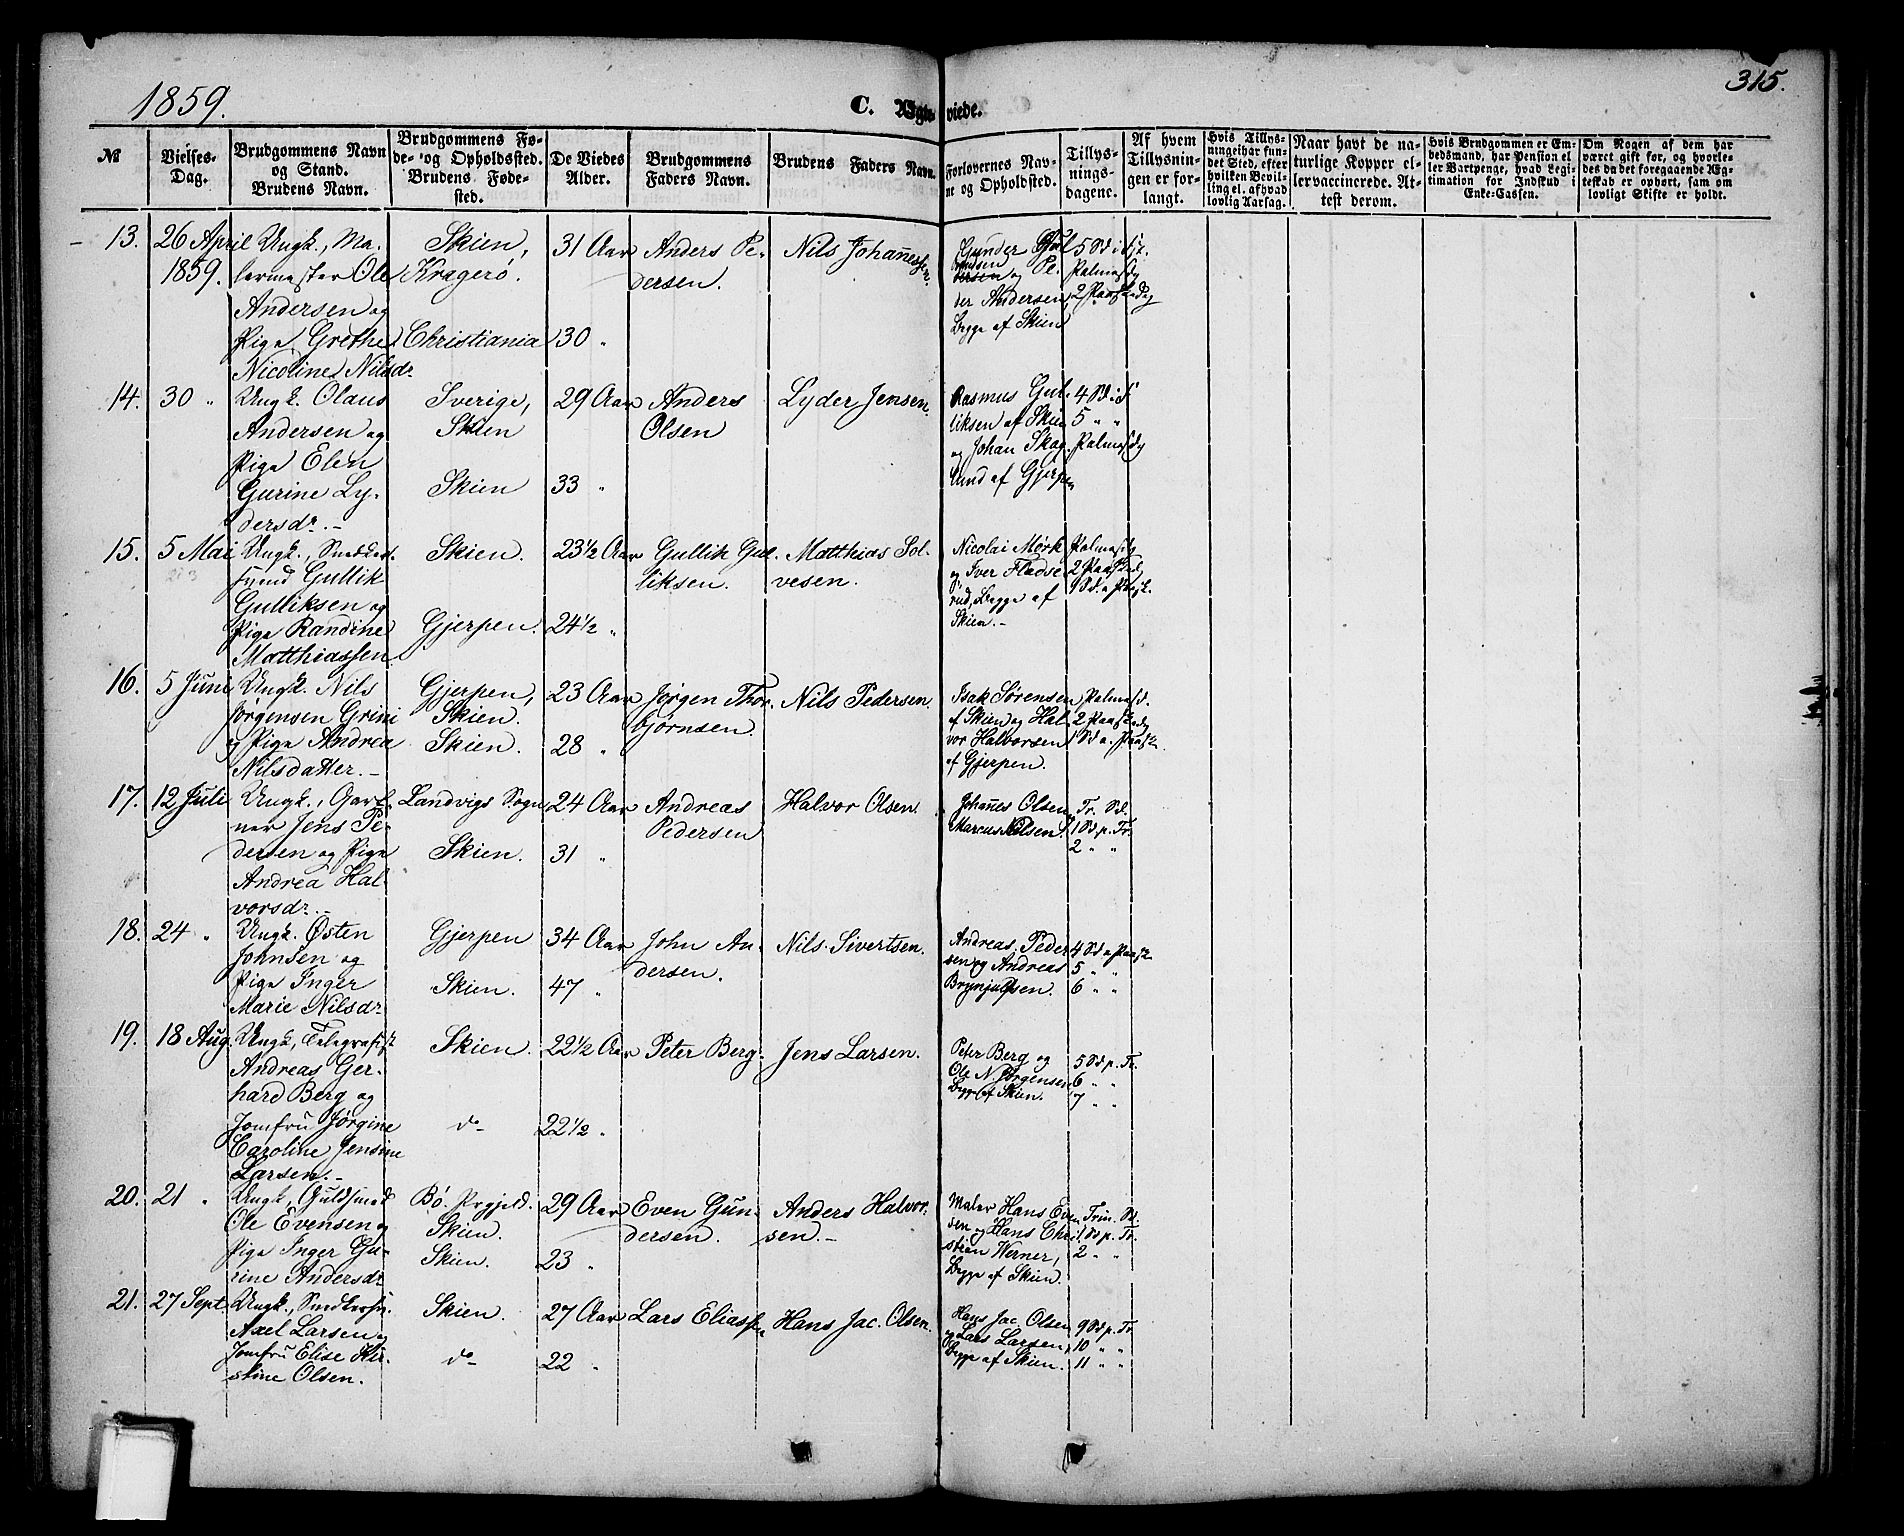 1859.
C. Ægteviede.
315.
№
Vielses-
Dag.
Brudgommens Navn
og Stand.
Brudens Navn.
Brudgommens Fø-
de- og Opholdssted.
Brudens Føde-
sted.
De Viedes
Alder.
Brudgommens
Faders Navn.
Brudens Faders Navn.
Forlovernes Nav-
ne og Opholdsted.
Tillys-
nings-
dagene.
Af hvem
Tillysnin-
gen er for-
langt.
Hvis Tillys-
ning ei har fun-
det Sted, efter
hvilken Bevil-
ling el. af hvad
lovlig Aarsag.
Naar havt de na-
turlige Kopper el-
ler vaccinerede. At-
test derom.
Hvis Brudgommen er Em-
bedsmand, har Pension el-
ler Vartpenge, hvad Legi-
timation for Indskud i
Enke-Cassen.
Om Nogen af dem har
været gift før, og hvorle-
des da det foregaaende Æg-
teskab er ophørt, sam om
lovligt Skifte er holdt.
13.
26 April
1859.
Ungk., Ma-
lermester Ole
Andersen og
Pige Grethe
Nicoline Nilsdr
Skien,
Kragerö.
Christiania
31 Aar
30 "
Anders Pe-
dersen.
Nils Johannessen.
Gunder
og Pe-
der Andersen,
Begge af Skien
5 Sd i F.
Palmesdg
2 Paaskedag
14.
30 "
Ungk. Olaus
Andersen og
Pige Elen
Gurine Ly-
dersdr. -
Sverige,
Skien
Skien
29 Aar
33 "
Anders
Olsen
Lyder Jensen.
Rasmus Gul-
liksen af Skien
og Johan Skag-
lund af Gjerpen
4 Sd i F
5 " "
Palmesdg
15.
5 Mai
Ungk., Snedker-
svend Gullik
Gulliksen og
Pige Randine
Matthiassen
Skien.
Gjerpen.
23 1/2 Aar
24 1/2 "
Gullik Gul-
liksen.
Matthias Sol-
vesen.
Nicolai Mørk
og Iver Fladse-
rud, Begge af
Skien. -
Palmesdg
2 Paaskedg
1 Sd. a. Paask.
16.
5 Juni
Ungk. Nils
Jørgensen Grini
og Pige Andrea
Nilsdatter. -
Gjerpen,
Skien.
Skien.
23 Aar
28 "
Jørgen Thor-
bjørnsen.
Nils Pedersen.
Isak Sørensen
af Skien og Hal-
vor Halvorsen
af Gjerpen.
Palmesd.
2 Paaskedg
1 Sd a. Paask.
17.
12 Juli
Ungk., Gart-
ner Jens Pe-
dersen og Pige
Andrea Hal-
vorsdr. -
Landvigs Sogn
Skien.
24 Aar
31 "
Andreas
Pedersen
Halvor Olsen.
Johannes Olsen
Marcus Nilsen
Tr. Sd.
1 Sd p. Tr.
2 " "
18.
24 "
Ungk. Østen
Johnsen og
Pige Inger
Marie Nilsdr
Gjerpen
Skien.
34 Aar
47 "
John An-
dersen.
Nils Sivertsen.
Andreas Peder-
sen og Andreas
Brynjulfsen.
4 Sd a Paask
5 " "
6 " "
19.
18 Aug.
Ungk., Telegrafist
Andreas Ger-
hard Berg og
Jomfru Jørgine
Caroline Jensine
Larsen. -
Skien.
do
22 1/2 Aar
22 1/2 "
Peter Berg.
Jens Larsen.
Peter Berg og
Ole N Jørgensen
Begge af Skien.
5 Sd p. Tr.
6 " "
7 " "
20.
21 "
Ungk., Guldsmed
Ole Evensen og
Pige Inger Gu-
rine Andersdr
Bö. Prgjeld.
Skien.
Skien.
29 Aar
23 "
Even Gun-
dersen.
Anders Halvor-
sen. -
Maler Hans Even-
sen og Hans Chri-
stian Werner,
Begge af Skien.
Trin. Sd.
1 Sd p. Tr.
2 " "
21.
27 Sept
Ungk., Snedkersv.
Axel Larsen og
Jomfru Elise Kir-
stine Olsen.
Skien.
do
27 Aar
22 "
Lars Eliassen
Hans Jac. Olsen.
Hans Jac. Olsen
og Lars Larsen,
Begge af Skien.
9 Sd p. Tr
10 " "
11 " "